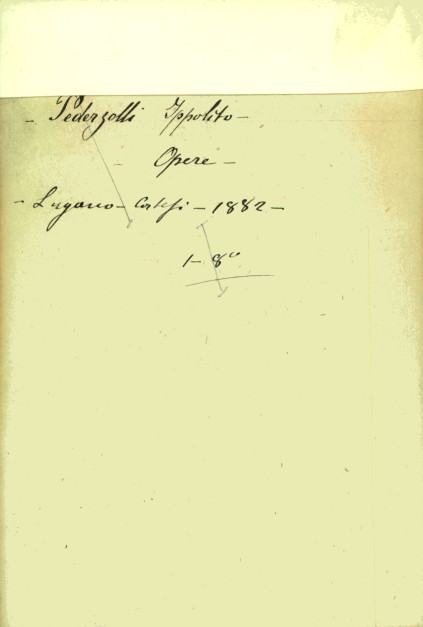 – Pederzolli Ippolito –
– Opere –
– Lugano – Cortesi – 1882 –
1 – 8°